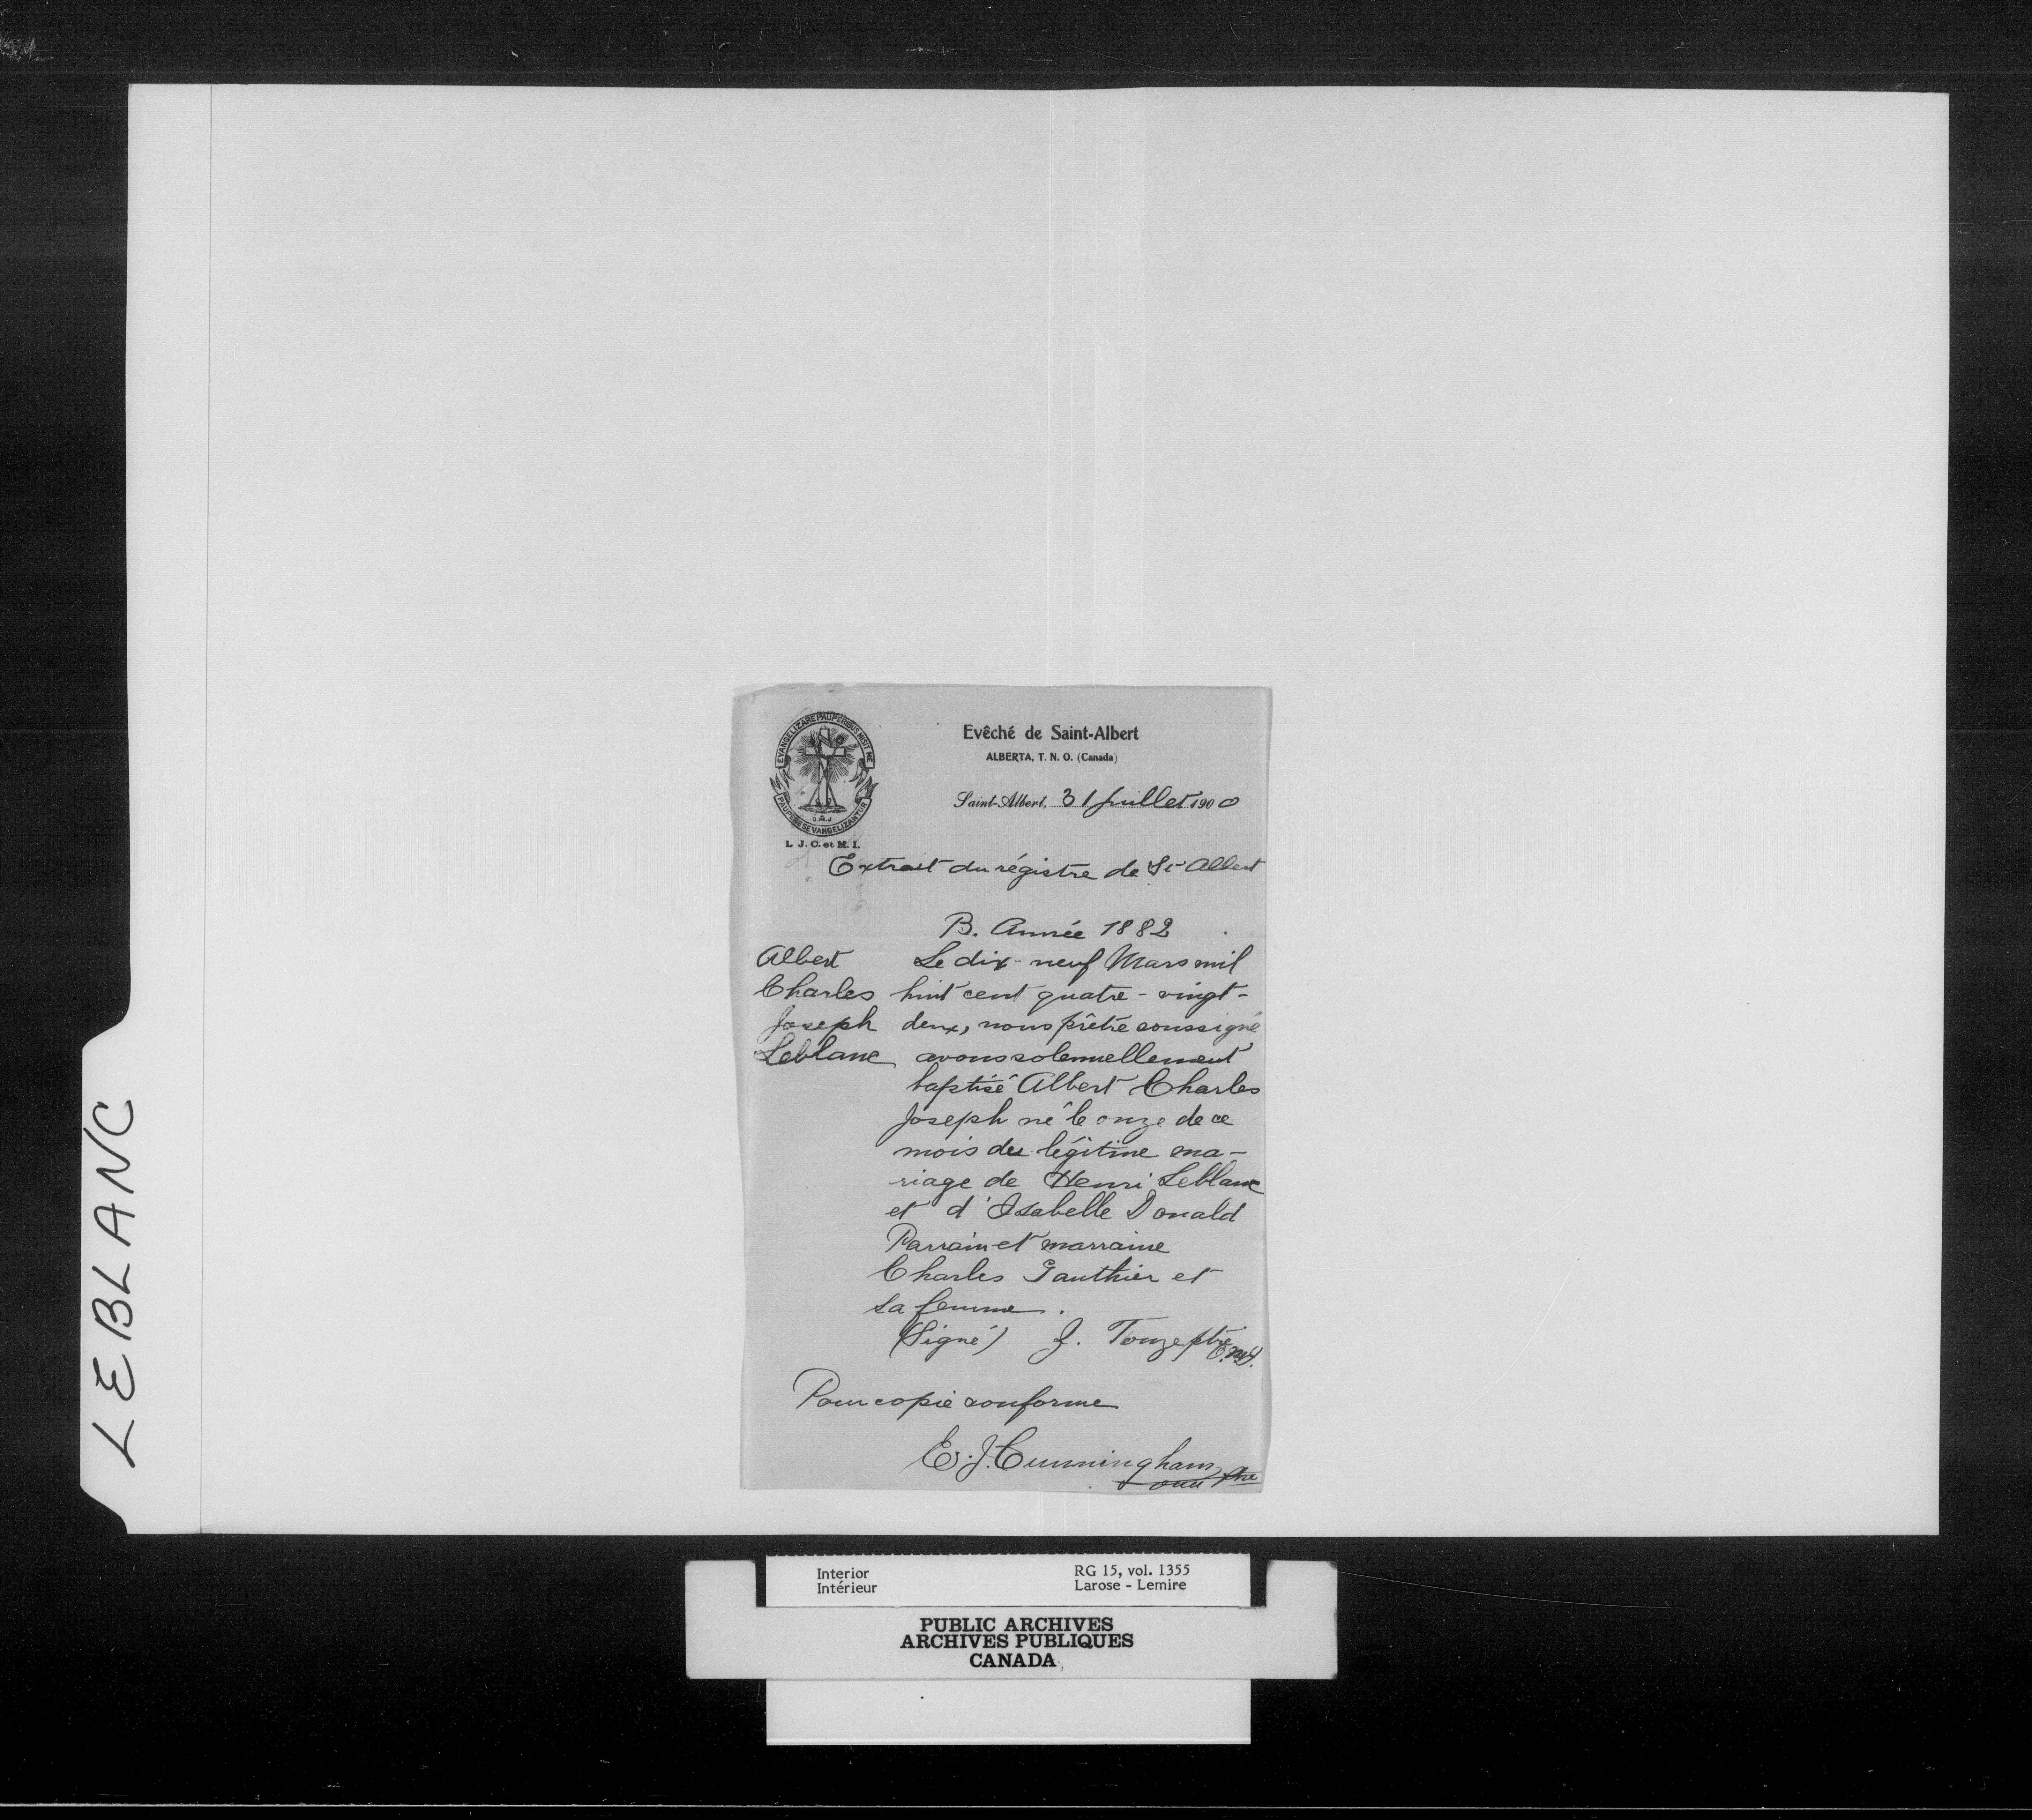 EVANGELIZARE PAUPERIBUS MISIT ME
PAUPERES EVANGELIZANTUR
O.M.J
L. J. C. et M. I.
Evêché de Saint-Albert
ALBERTA, T. N. O. (Canada)
Saint-Albert, 31 juillet 1900
Extrait du régistre de St Albert
B. Année 1882
Albert
Charles
Joseph
Leblanc
Le dix-neuf Mars mil
huit cent quatre-vingt-
deux, nous prêtre soussigné
avons solennellement
baptisé Albert Charles
Joseph né le onze de ce
mois du légitime ma-
riage de Henri Leblanc
et d'Isabelle Donald
Parrain et marraine
Charles Gauthier et
sa femme.
(Signé) J. Touze ptre
O.M.I.
Pour copie conforme
E. J. Cunningham
omi ptre
LEBLANC
Interior
Intérieur
RG 15, vol. 1355
Larose - Lemire
PUBLIC ARCHIVES
ARCHIVES PUBLIQUES
CANADA